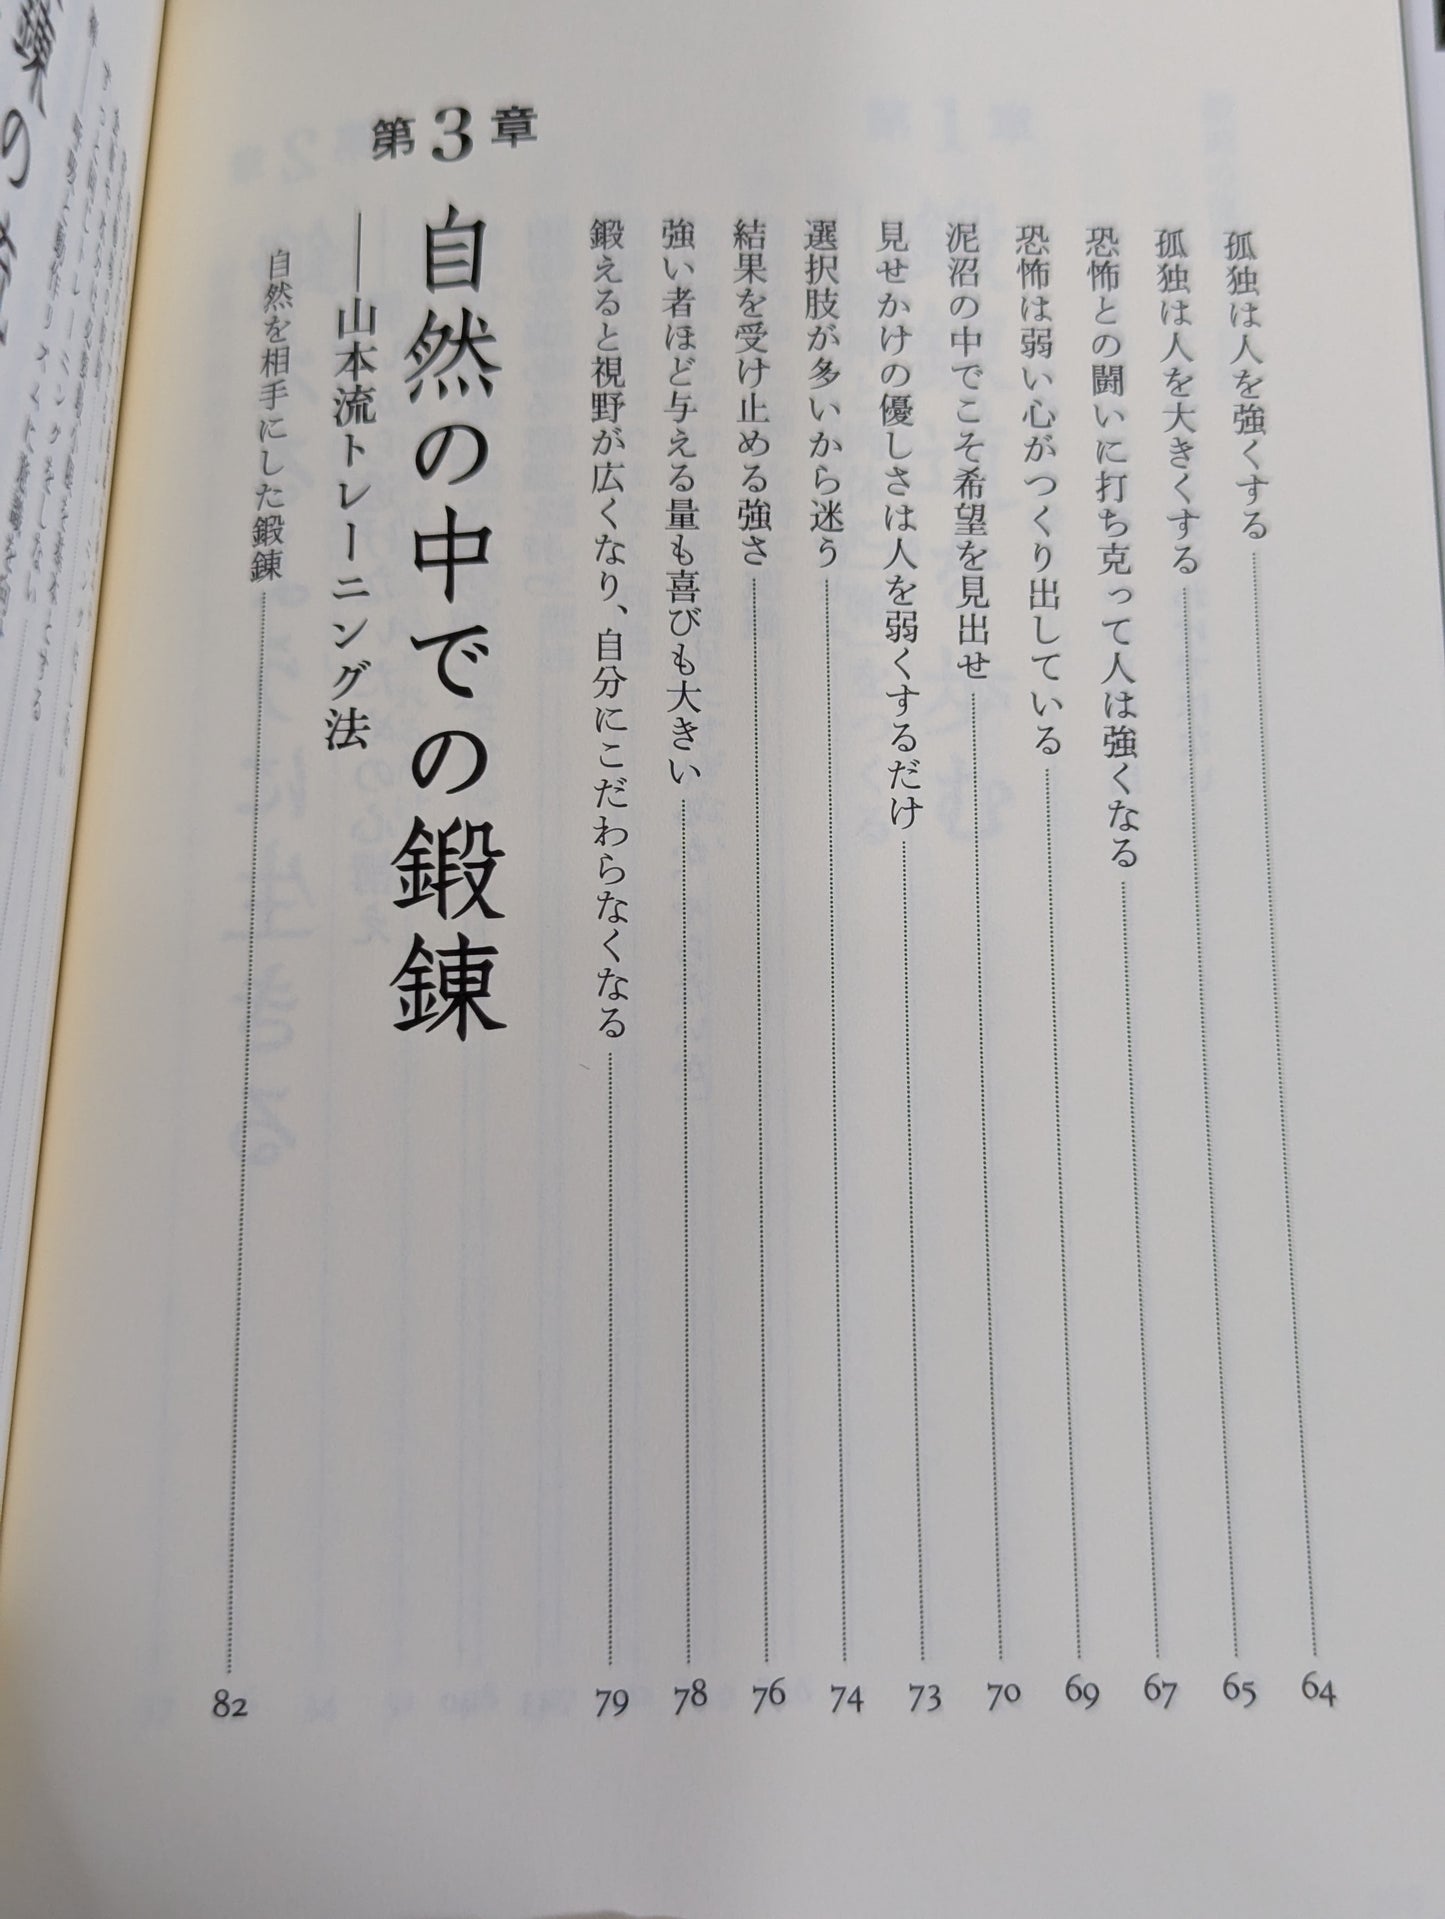 孤独は人を強くする 64
孤独は人を大きくする 65
恐怖との闘いに打ち克って人は強くなる 67
恐怖は弱い心がつくり出している 69
泥沼の中でこそ希望を見出せ 70
見せかけの優しさは人を弱くするだけ 73
選択肢が多いから迷う 74
結果を受け止める強さ 76
強い者ほど与える量も喜びも大きい 78
鍛えると視野が広くなり、自分にこだわらなくなる 79
第3章
自然の中での鍛錬
――山本流トレーニング法
自然を相手にした鍛錬 82